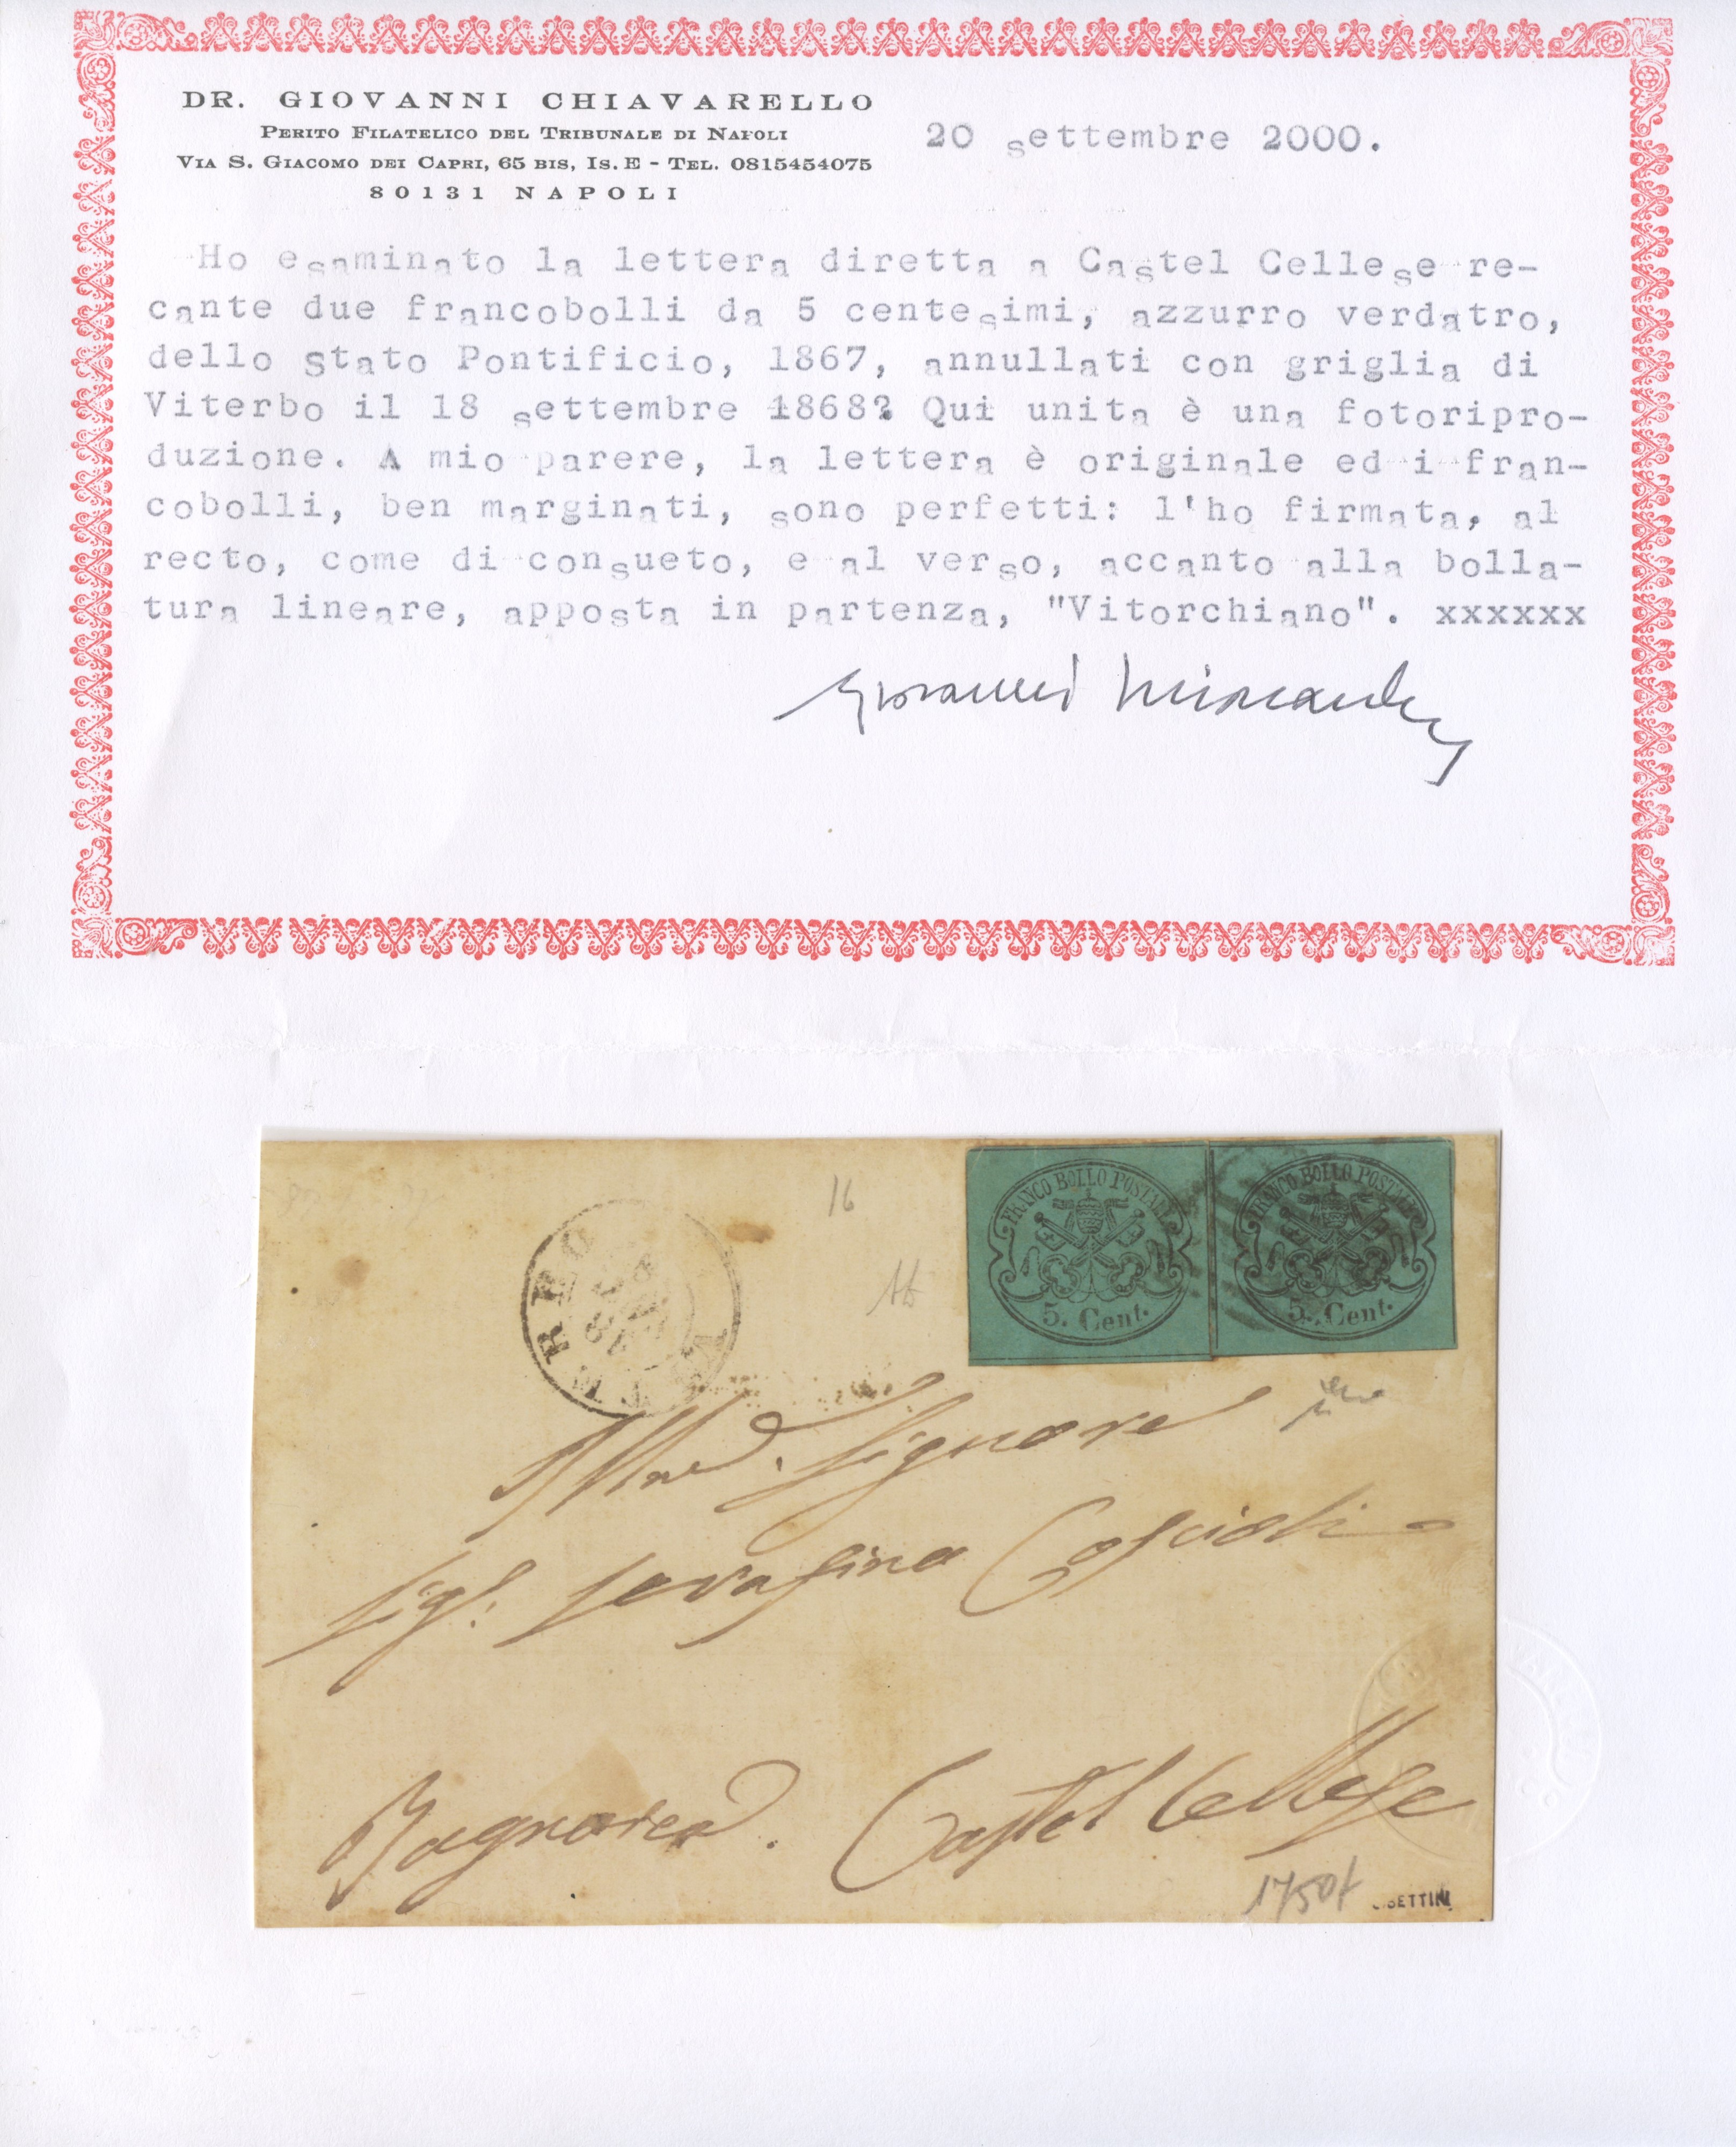 DR. GIOVANNI CHIAVARELLO
PERITO FILATELICO DEL TRIBUNALE DI NAPOLI
VIA S. GIACOMO DEI CAPRI, 65 BIS, IS. E - TEL. 0815454075
80131 NAPOLI
20 settembre 2000.
Ho esaminato la lettera diretta a Castel Cellese re-
cante due francobolli da 5 centesimi, azzurro verdatro,
dello stato Pontificio, 1867, annullati con griglia di
Viterbo il 18 settembre 1868? Qui unita è una fotoripro-
duzione. A mio parere, la lettera è originale ed i fran-
cobolli, ben marginati, sono perfetti: l'ho firmata, al
recto, come di consueto, e al verso, accanto alla bolla-
tura lineare, apposta in partenza, "Vitorchiano". xxxxxx
16
16
FRANCO BOLLO POSTALE
5. Cent.
FRANCO BOLLO POSTALE
5. Cent.
VITERBO
Signore
Sig. Serafino
Bagnorea. Castel Cellese
1750